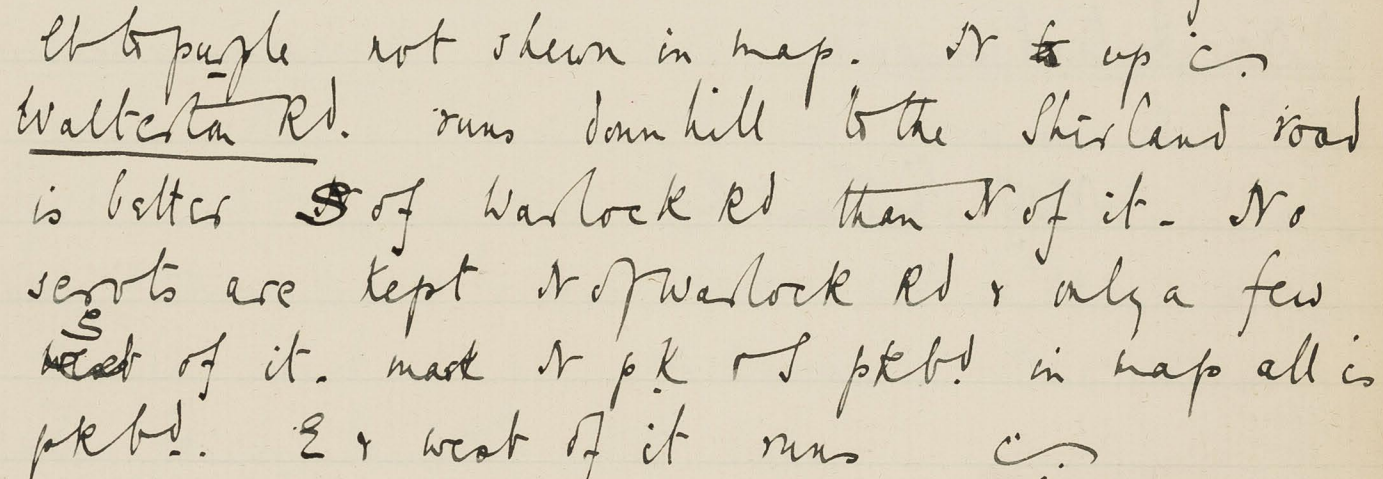 lt b to purple not shewn in map. N up
Walterton Rd. runs down hill to the Shirland road
is better S of Warlock Rd than N of it - No
servts are kept N of Warlock Rd & only a few
S of it. mark N pk & S pkbd in map all is
pkbd. E & west of it runs